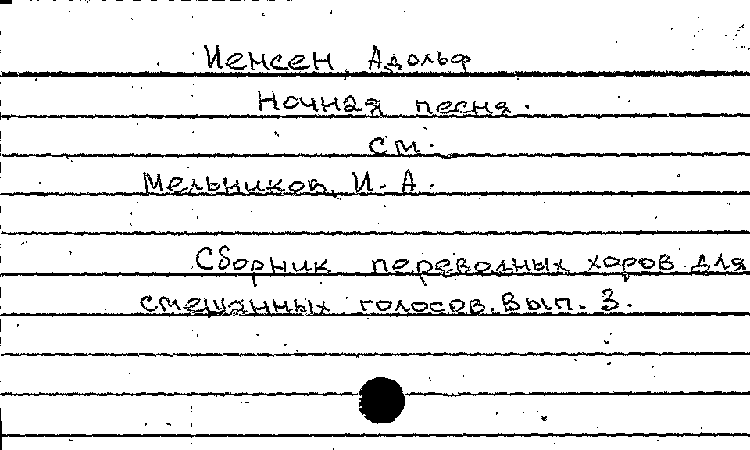 Иенсен, Адольф
Ночная песня.
см.
Мельников, И. А.
Сборник переводных хоров для
смешанных голосов. Вып. 3.